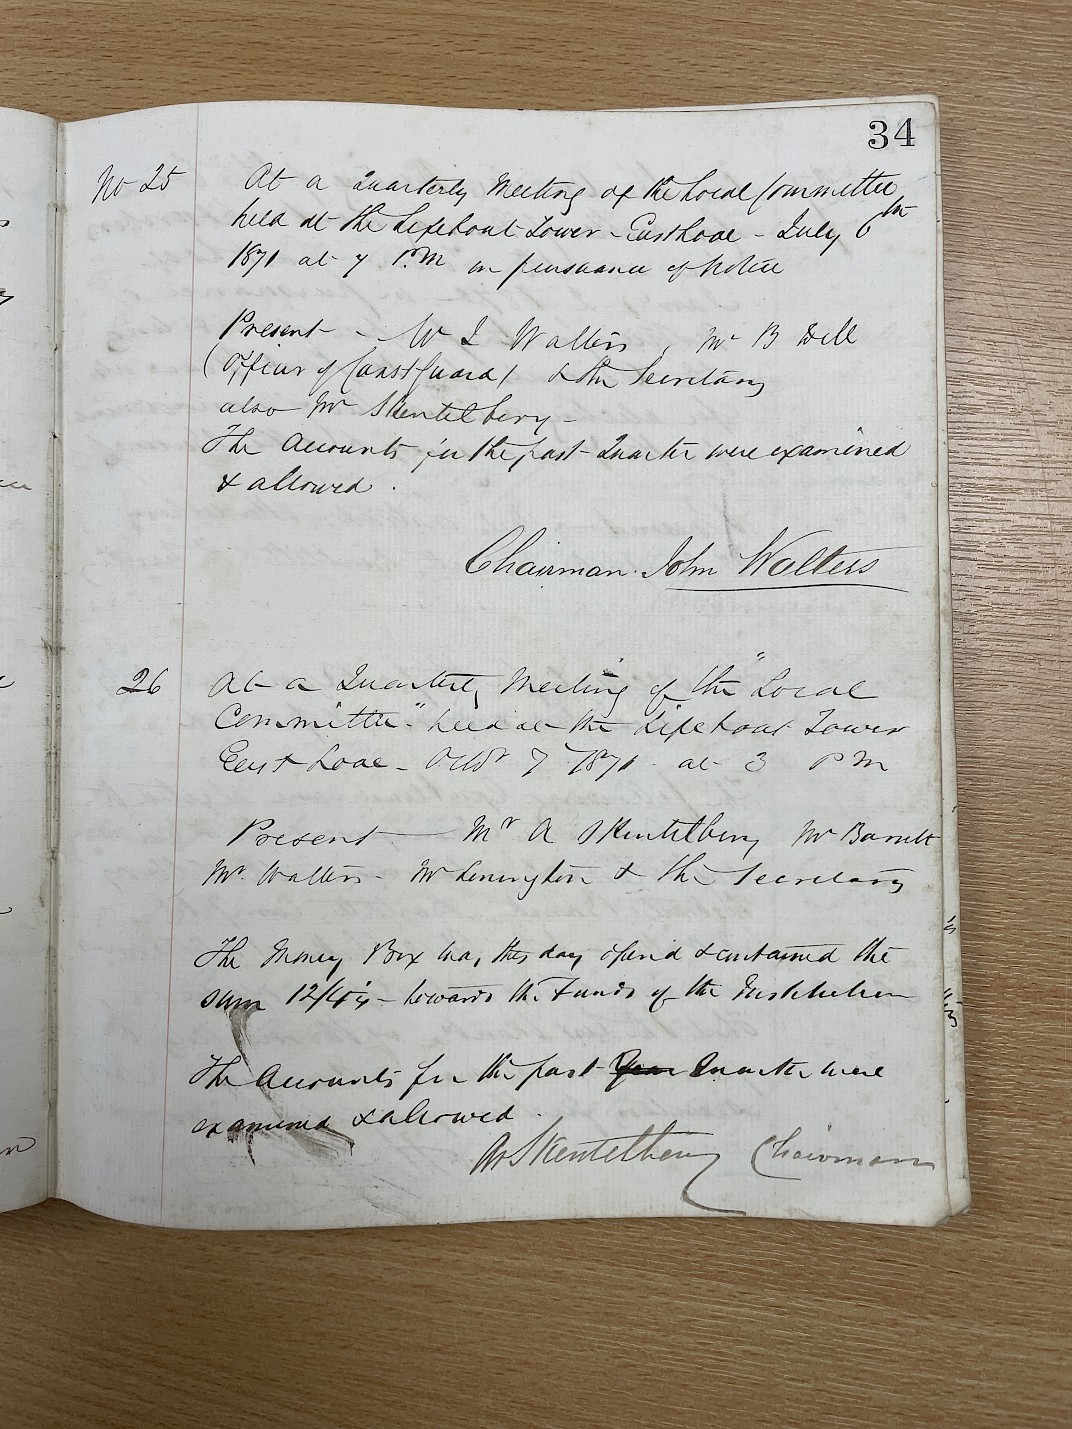 34
No 25 At a Quarterly Meeting of the Local Committee
held at the Lifeboat Tower - East Looe - July 6th
1871 at 7 P.M in pursuance of Notice
Present - Mr J Walters, Mr B Dell
(Officer of Coast Guard) & the Secretary
also Mr Skentelbery -
The Accounts for the past Quarter were examined
& allowed.
Chairman. John Walters
26 At a Quarterly Meeting of the "Local
Committee" held at the Lifeboat Tower
East Looe - Octbr 7 1871 at 3 PM
Present - Mr A Skentelbery Mr Barrett
Mr. Walters - Mr Lenington & the Secretary
The Money Box was this day opened & contained the
sum 12/4 - towards the Funds of the Institution
The Accounts for the past Year Quarter were
examined & allowed.
Skentelbery Chairman